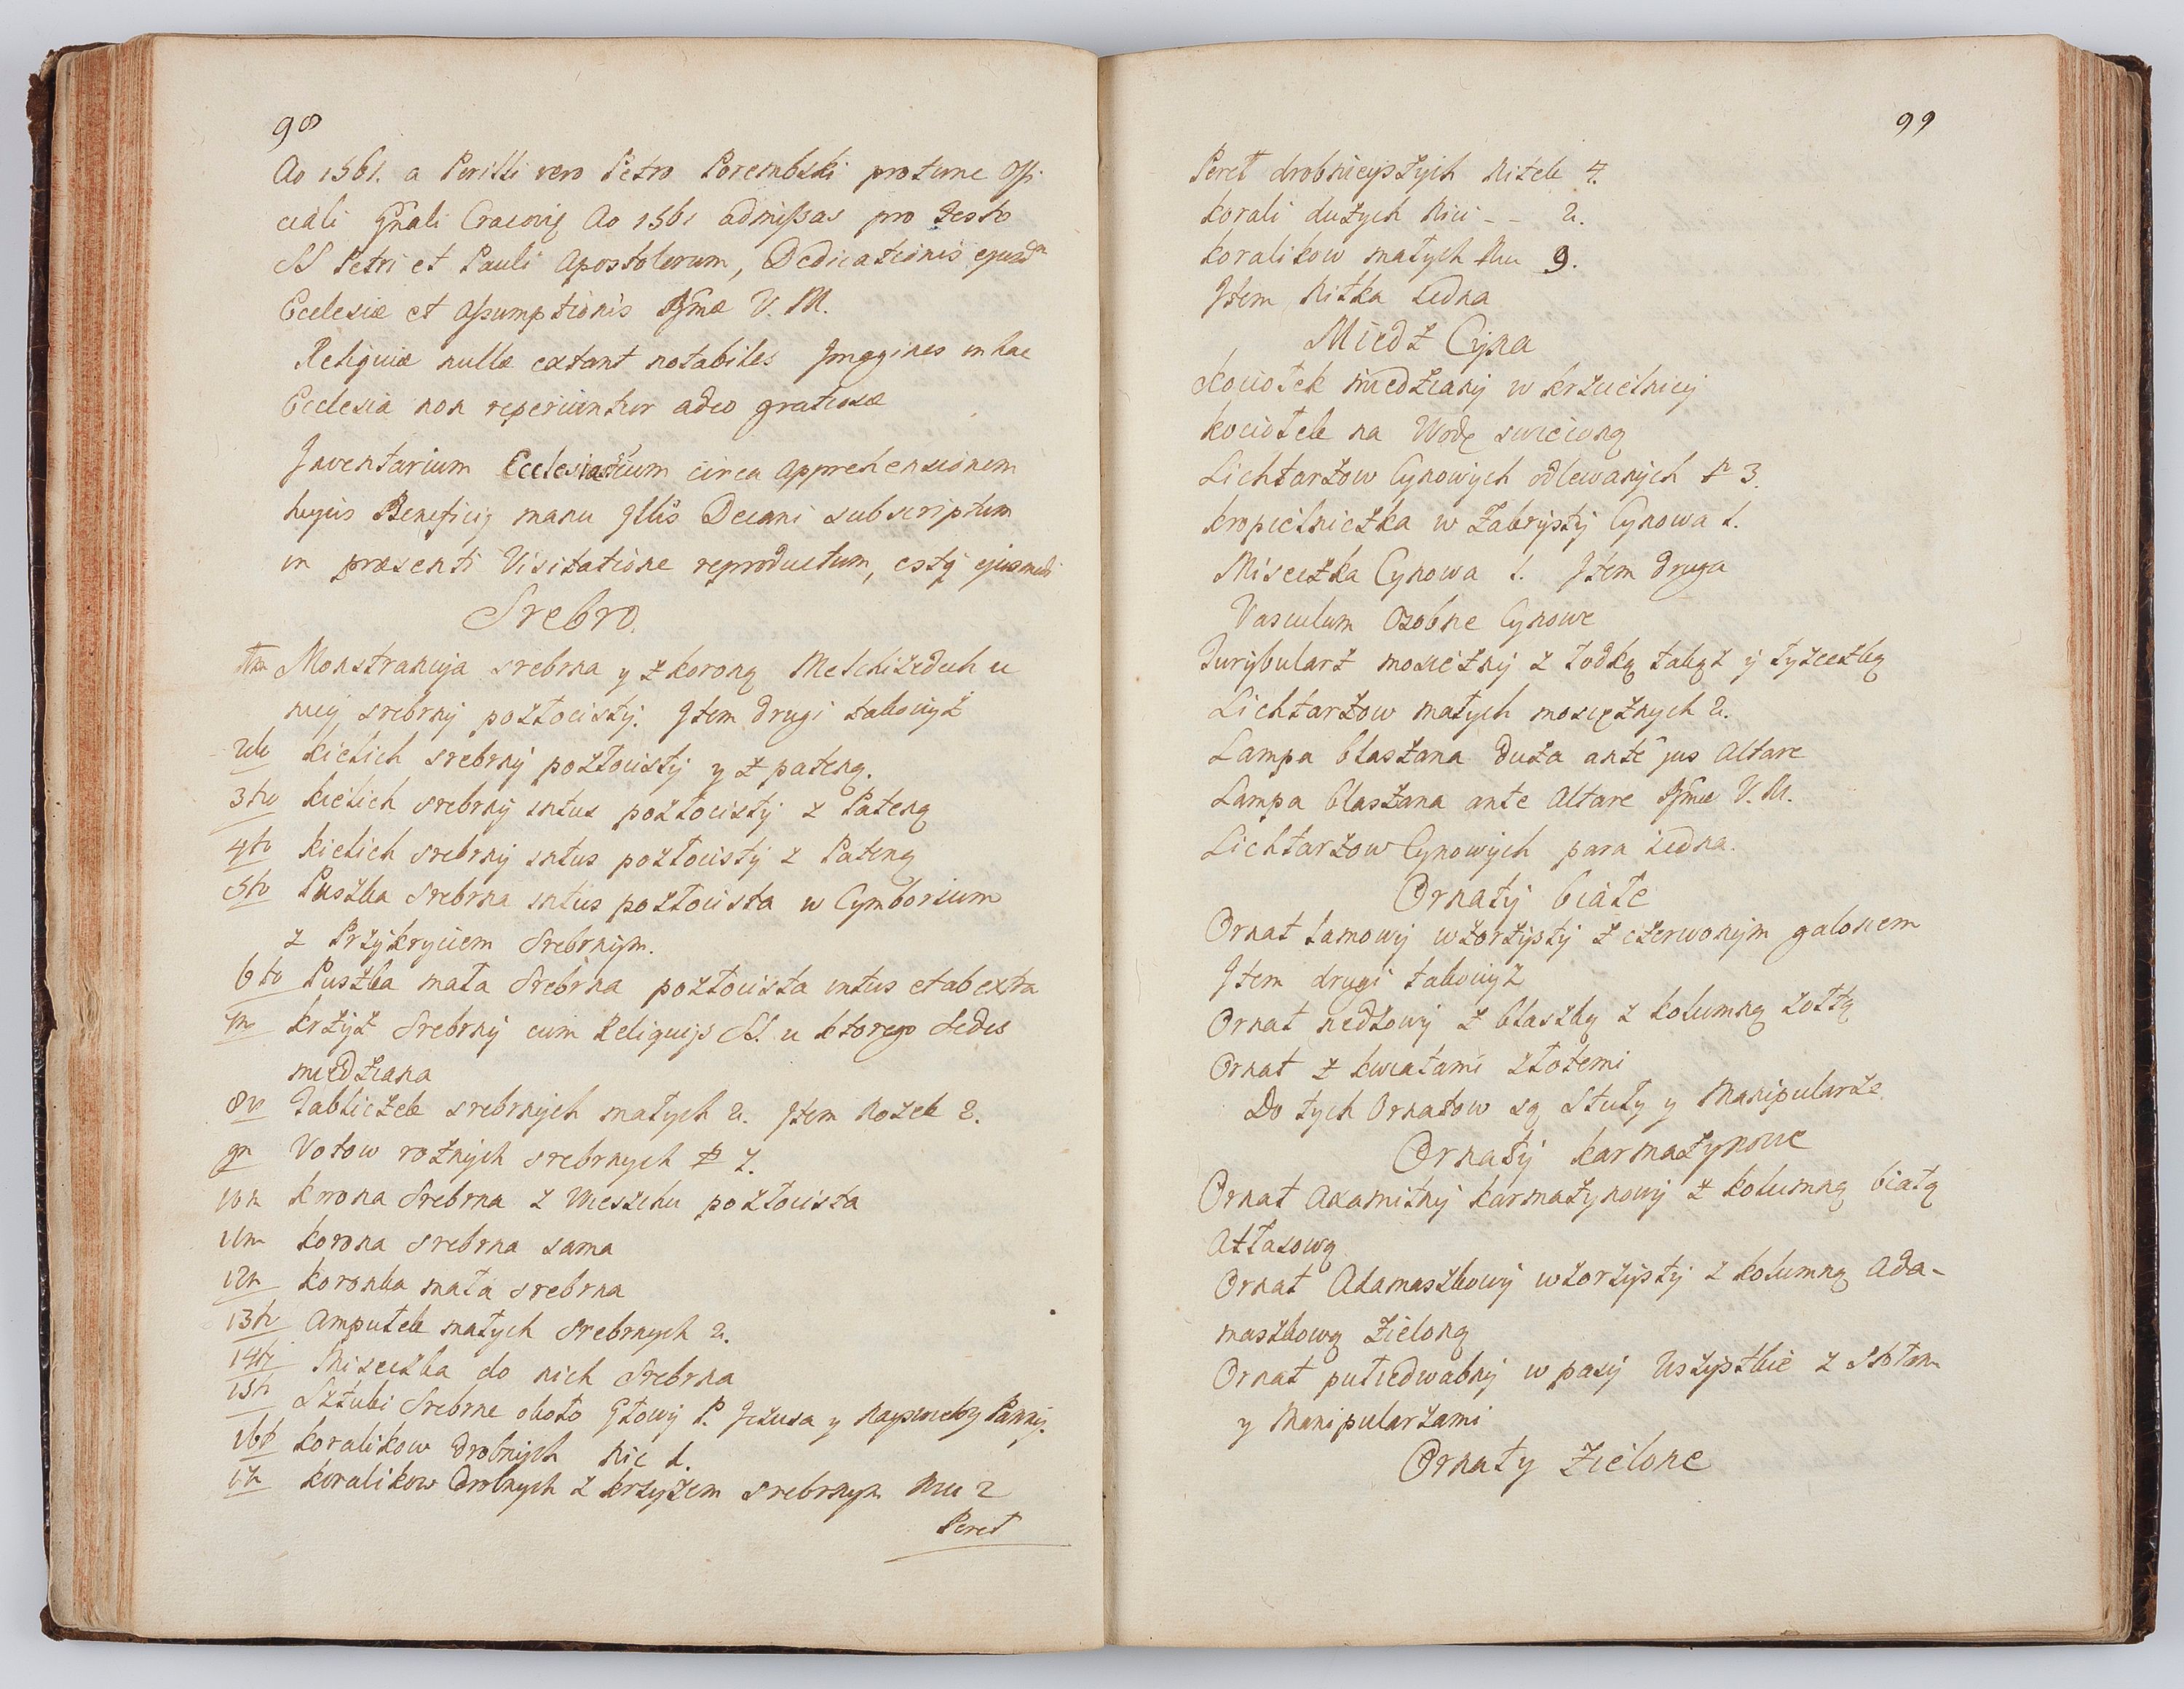 98
Ao 1561. a Perilli vero Petro Porembski protunc Offi
ciali Gñali Cracovię Ao 1561 admissas pro festo
SS Petri et Pauli Apostolorum, Dedicationis ejusdm
Ecclesiæ et Assumptionis Bṽmæ V. M.
Reliquiæ nullæ extant notabiles Imagines in hac
Ecclesia non reperiuntur adeo gratiosæ
Inventarium Ecclesiasticum circa apprehensionem
hujus Beneficij manu Illis Decani subscriptum
in præsenti Visitatione reproductum, estq ejusmodi
Srebro.
1mo Monstrancyja srebrna y z koroną Melchizeduh u
niey srebrny pozłocisty. Item drugi takowyż
2do kielich srebrny pozłocisty y z pateną.
3tio kielich srebrny intus pozłocisty z Pateną
4to kielich srebrny intus pozłocisty z Pateną
5to Puszka Srebrna intus pozłocista w Cymborium
z Przykryciem Srebrnym.
6to Puszka mała Srebrna pozłocista intus et ab extra
7mo krzyż Srebrny cum Reliquijs SS. u ktorego Sedes
miedziana
8vo Tabliczek srebrnych małych 2. Item Nozek 2.
9no Votow rożnych srebrnych 7.
10mo krrona Srebrna z Wieszchu pozłocista
11mo korona srebrna sama
12mo koronka mała srebrna
13tio Amputek małych Srebrnych 2.
14to Miseczka do nich Srebrna
15to Sztuki Srebrne około Głowy P. Jezusa y Nayswietszy Panny.
16to koralikow drobnych Nic 1.
17mo koralikow drobnych z krzyzem srebrnym Nici 2
Pereł
99
Pereł drobnieyszych Nitek 4.
korali dużych Nici - - 2.
koralikow małych Nici 9.
Item Nitka iedna
Miedź Cyna
kociołek miedziany w krzcielnicy
kociołek na Wodę swięconą
Lichtarzow Cynowych odlewanych 3.
kropielniczka w Zakrysty Cynowa 1.
Miseczka Cynowa 1. Item druga
Vasculum Osobne Cynowe
Turybularz mosiężny z łodką takąż y łyzeczką
Lichtarzow małych mosiężnych 2.
Lampa blaszana duża ante jus Altare
Lampa blaszana ante Altare Bṽmæ V. M.
Lichtarzow Cynowych para iedna.
Ornaty białe
Ornat lamowy wzorzysty z czerwonym galonem
Item drugi takowyż
Ornat nedzowy z blaszką z kolumną zołtą
Ornat z kwiatami złotemi
Do tych Ornatow są Stuły y Manipularze
Ornaty karmazynowe
Ornat axamitny karmazynowy z kolumną białą
Atłasową
Ornat Adamaszkowy wzorzysty z kolumną Ada-
maszkową zieloną
Ornat putiedwabny w pasy Wszystkie z Stołam
y Manipularzami
Ornaty zielone